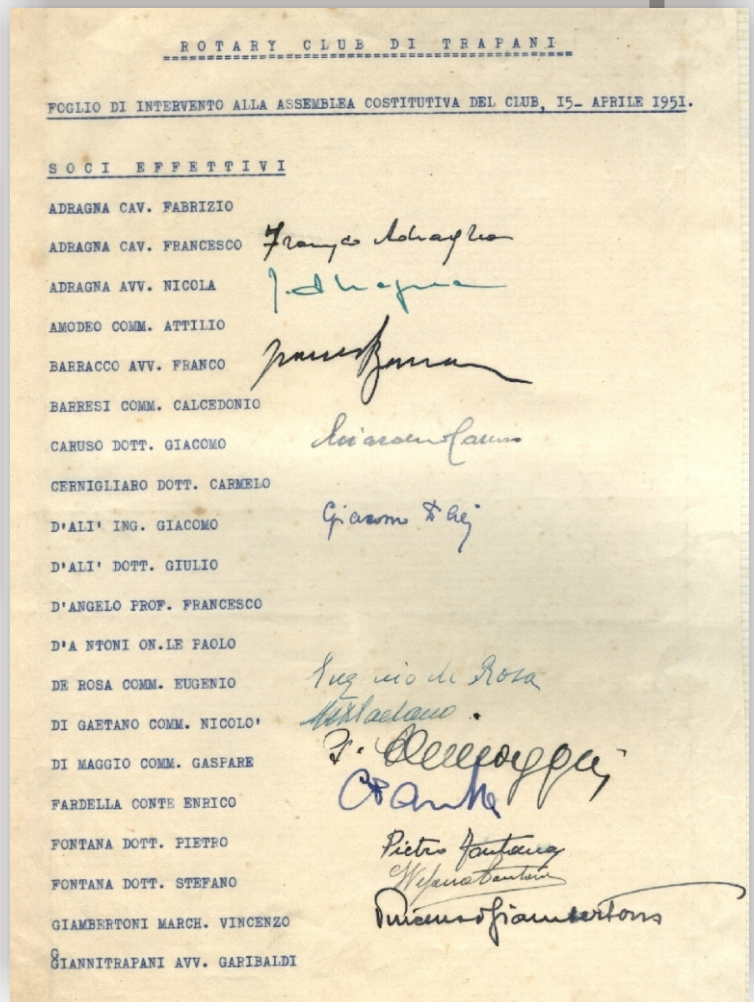 ROTARY CLUB DI TRAPANI
FOGLIO DI INTERVENTO ALLA ASSEMBLEA COSTITUTIVA DEL CLUB, 15- APRILE 1951.
SOCI EFFETTIVI
ADRAGNA CAV. FABRIZIO
ADRAGNA CAV. FRANCESCO Franco Adragna
ADRAGNA AVV. NICOLA
AMODEO COMM. ATTILIO
BARRACCO AVV. FRANCO
BARRESI COMM. CALCEDONIO
CARUSO DOTT. GIACOMO Caruso
CERNIGLIARO DOTT. CARMELO
D'ALI' ING. GIACOMO Giacomo D'Alì
D'ALI' DOTT. GIULIO
D'ANGELO PROF. FRANCESCO
D'A NTONI ON.LE PAOLO
DE ROSA COMM. EUGENIO Eugenio de Rosa
DI GAETANO COMM. NICOLO'
DI MAGGIO COMM. GASPARE
FARDELLA CONTE ENRICO
FONTANA DOTT. PIETRO Pietro Fontana
FONTANA DOTT. STEFANO Stefano Fontana
GIAMBERTONI MARCH. VINCENZO Vincenzo Giambertoni
GIANNITRAPANI AVV. GARIBALDI